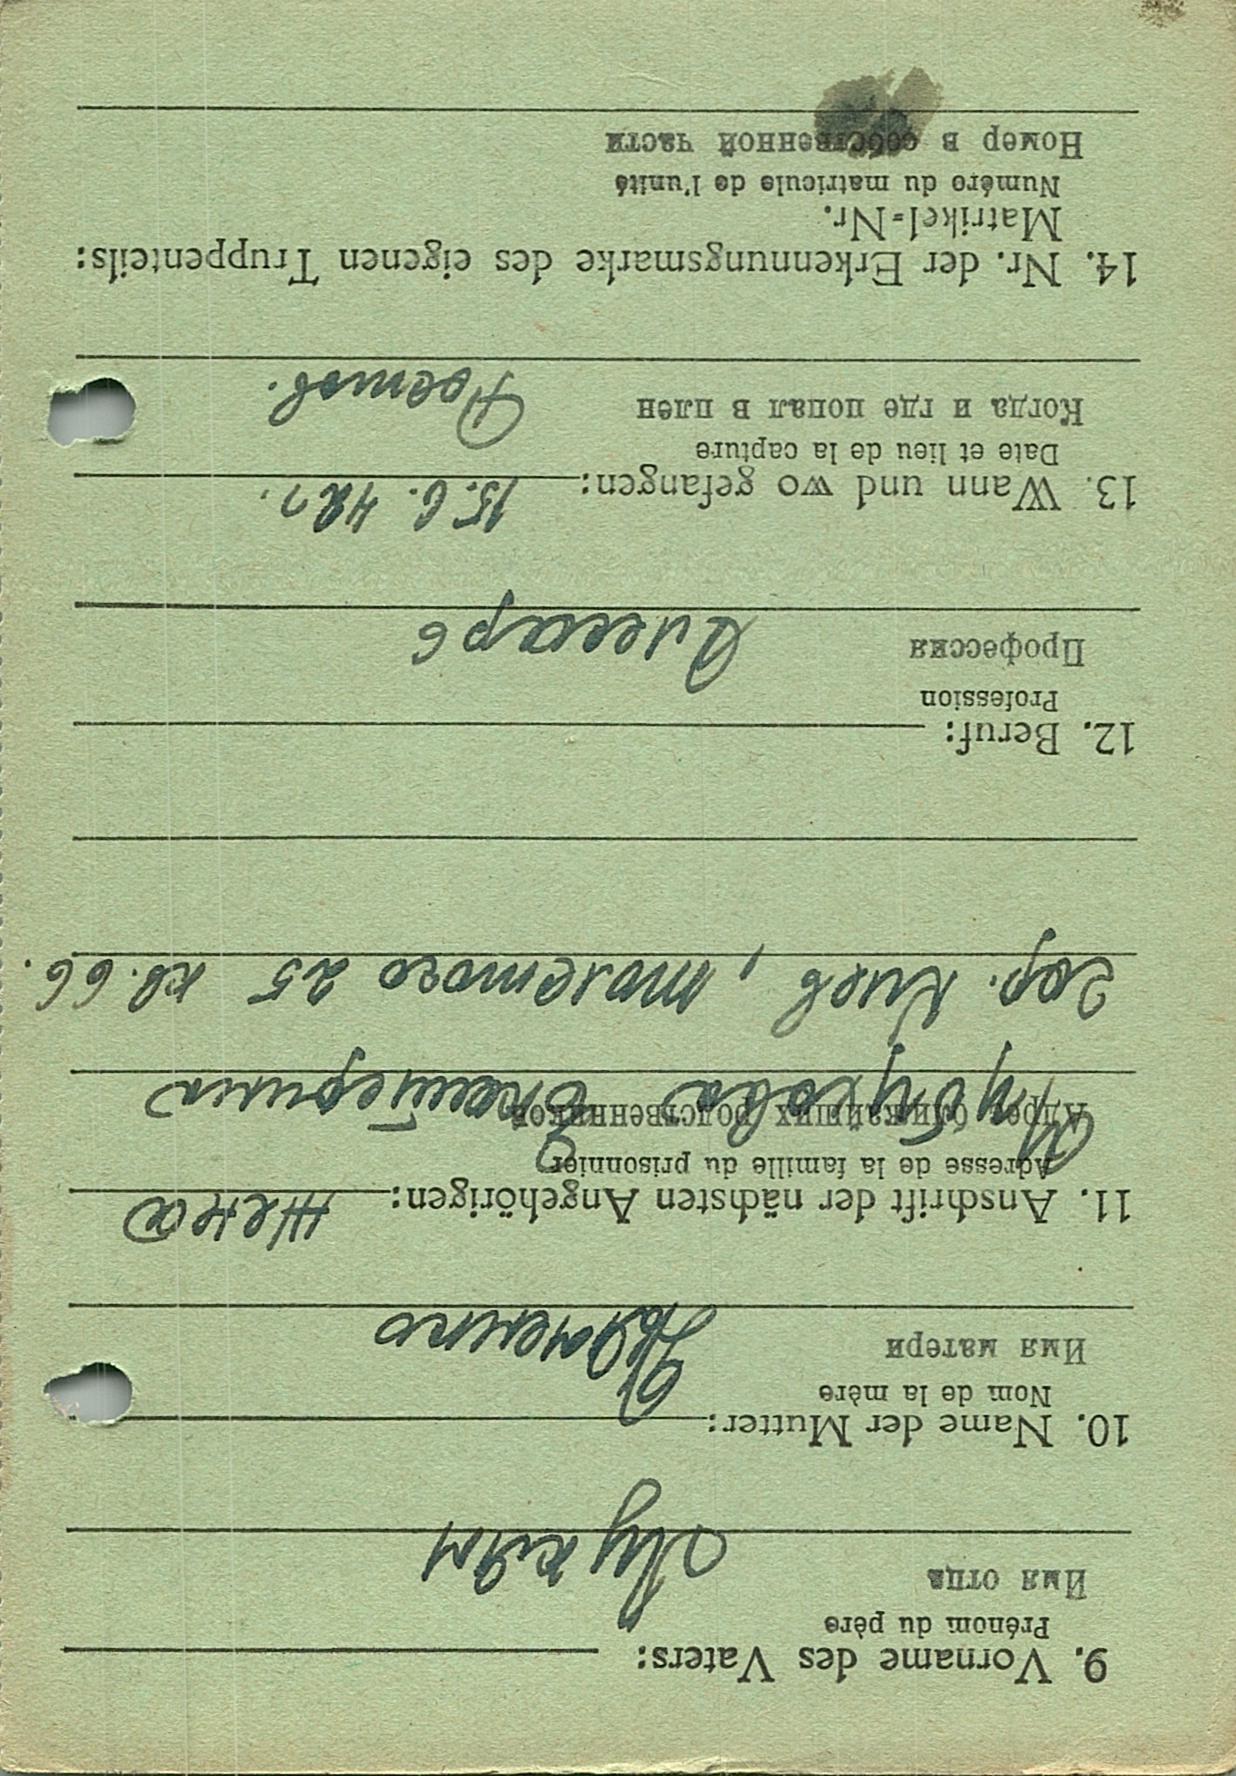 9. Vorname des Vaters:
Prénom du père
Имя отца
10. Name der Mutter:
Nom de la mère
Имя матери
11. Anschrift der nächsten Angehörigen: жена
Adresse de la famille du prisonnier
Адрес ближайших родственников
гор. Киев, толстого 25 кв. 66.
12. Beruf:
Profession
Профессия
Слесарь
13. Wann und wo gefangen: 15.6.42г.
Date et lieu de la capture
Когда и где попал в плен
Ростов.
14. Nr. der Erkennungsmarke des eigenen Truppenteils:
Matrikel-Nr.
Numéro du matricule de l'unité
Номер в собственной части